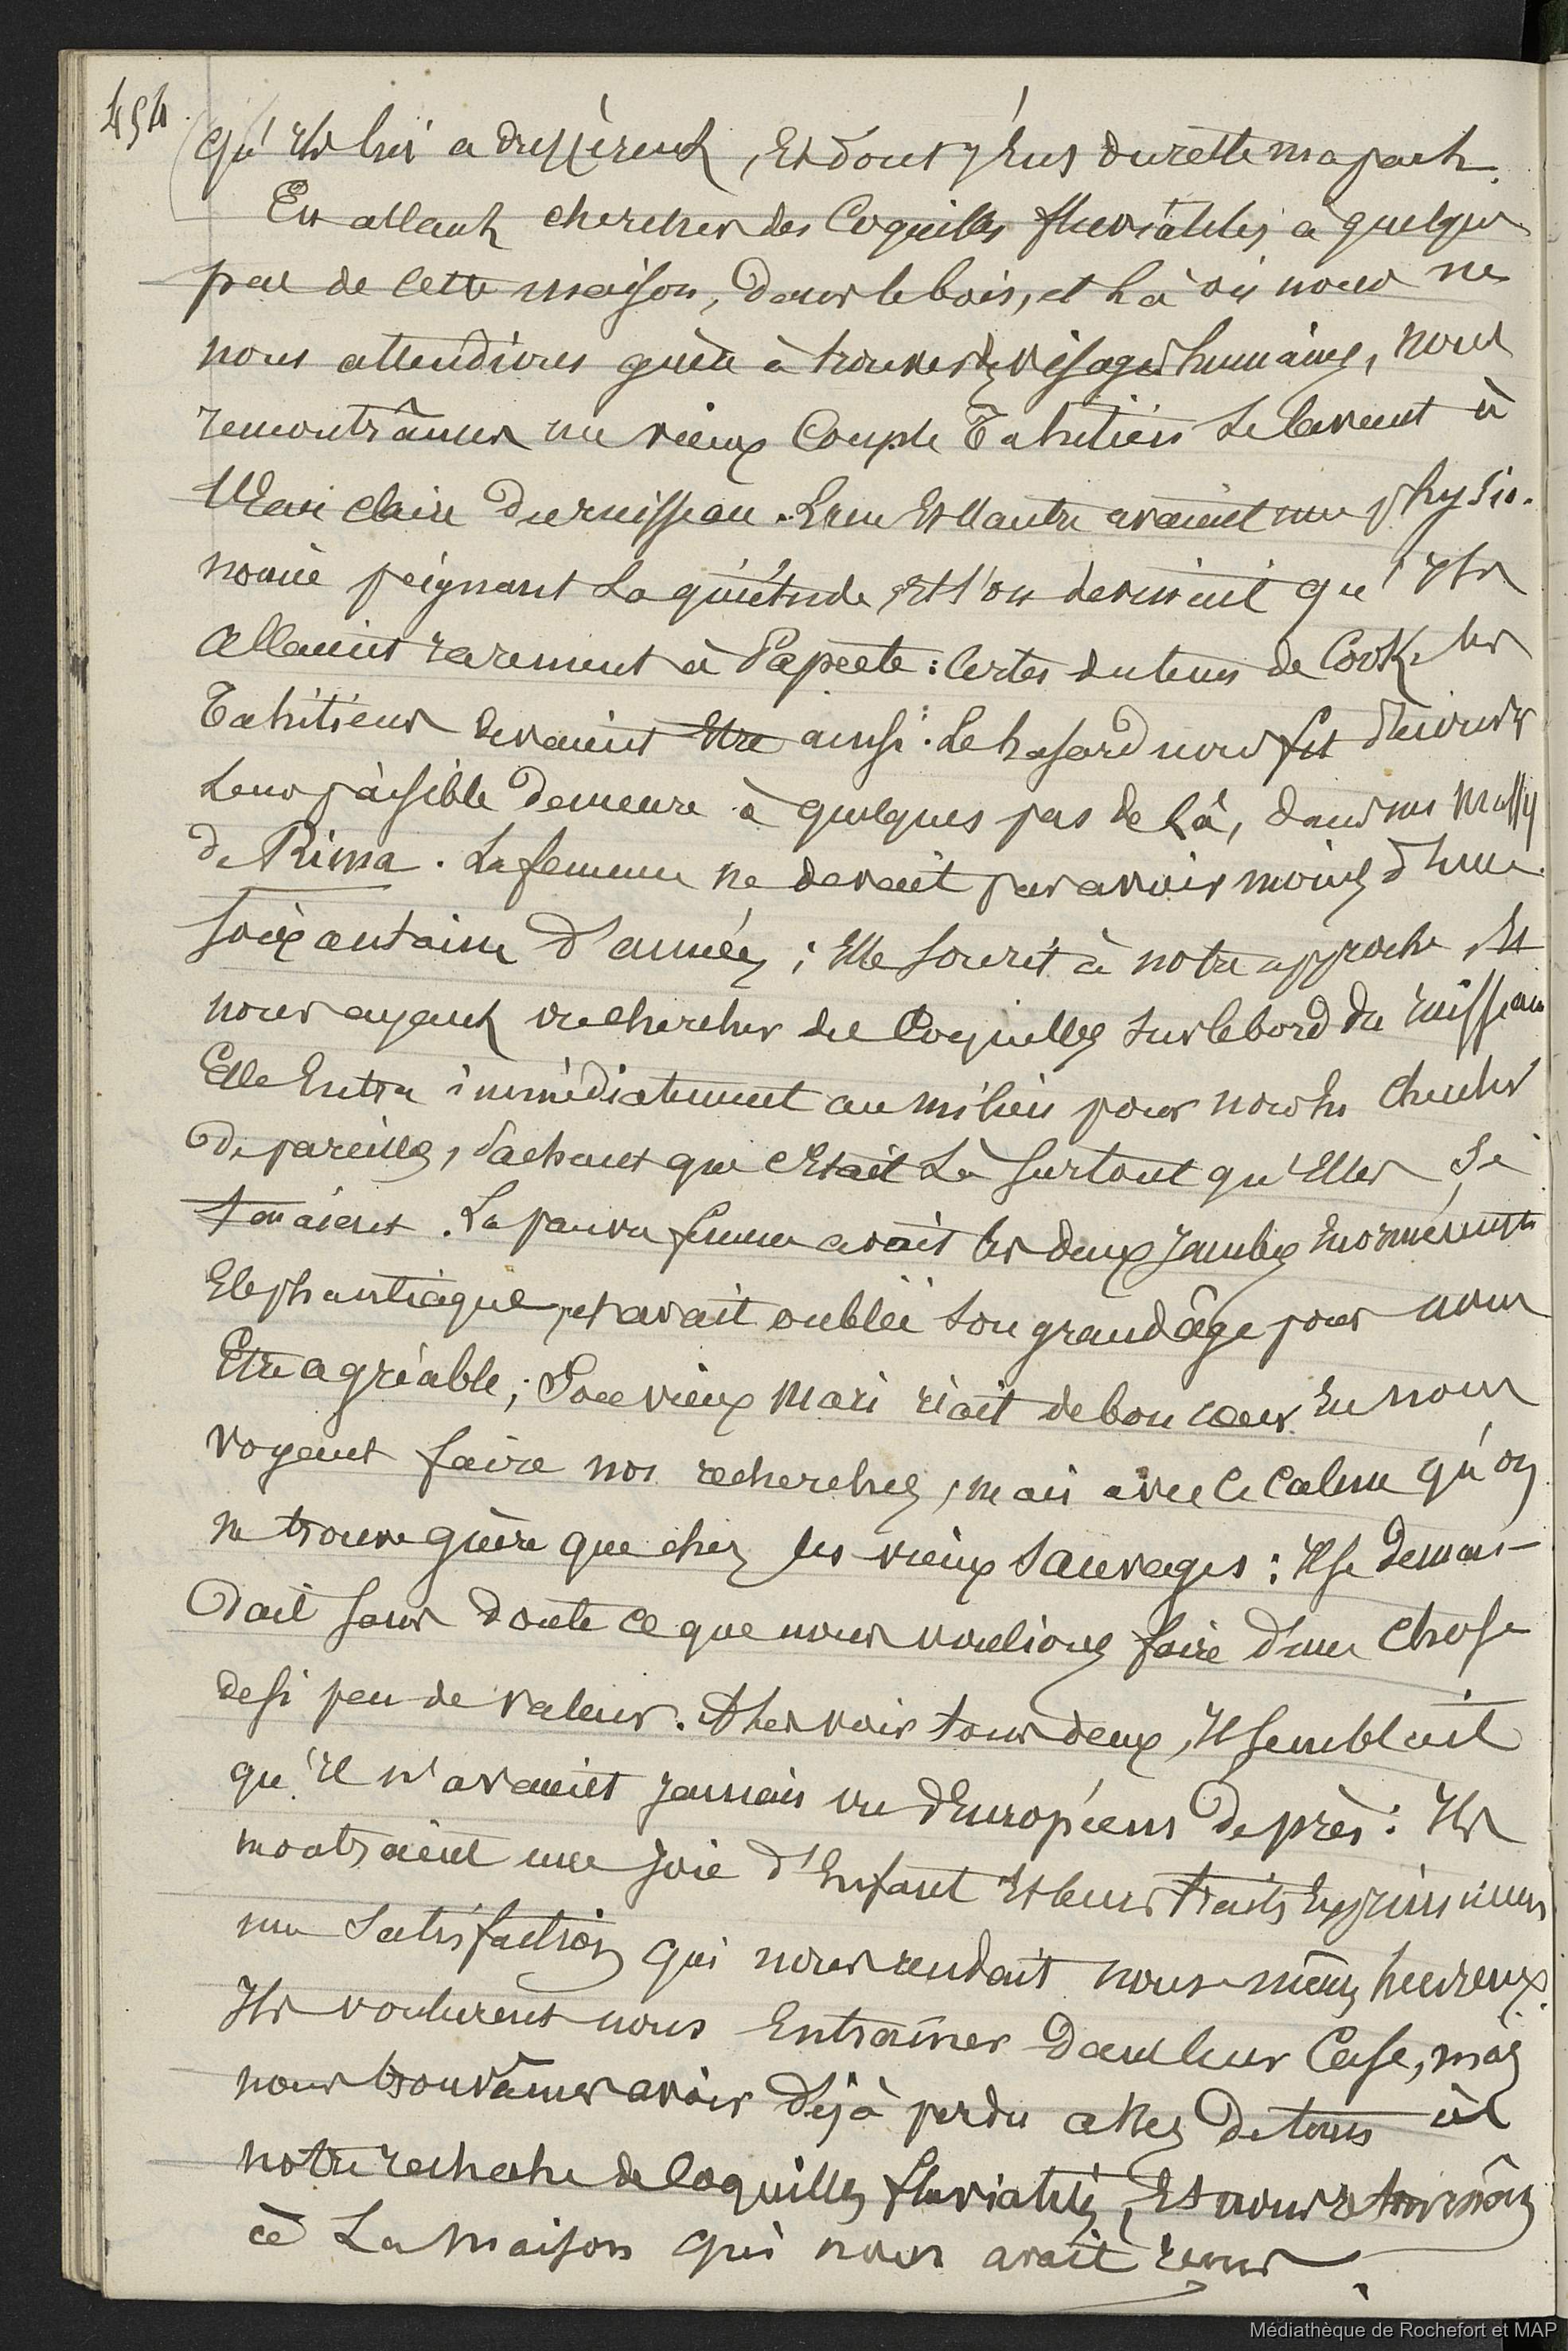 454
qu'ils lui adressèrent, et dont j'eus du reste ma part.
En allant chercher des Coquilles fluviatiles à quelque
pas de cette maison, dans le bois, et là où nous ne
nous attendions guère à trouver des visages humains, nous
rencontrâmes un vieux Couple Tahitien se lavant à
l'Eau claire du ruisseau. L'un et l'autre avaient une physio-
nomie peignant la quiétude, et l'on devinait qu'ils
allaient rarement à Papeete : Certes du tems de Cook, les
Tahitiens devaient Etre ainsi. Le hasard nous fit découvrir
leur paisible demeure à quelques pas de là, dans un massif
de Rima. La femme ne devait pas avoir moins d'une
soixantaine d'années ; Elle sourit à notre approche, Et
nous ayant vu chercher des Coquilles sur le bord du ruisseau
Elle Entra immédiatement au milieu pour nous en chercher
de pareilles, sachant que c'Etait là surtout qu'Elles se
tenaient. La pauvre femme avait les deux jambes Enormément
Elephantiaques, et avait oublié son grand âge pour nous
Etre agréable ; Son vieux mari riait de bon cœur En nous
voyant faire nos recherches, mais avec le calme qu'on
ne trouve guère que chez les vieux Sauvages : Il se deman-
dait sans doute ce que nous voulions faire d'une chose
de si peu de valeur. A les voir tous deux, Il semblait
qu'il n'avaient jamais vu d'Européens de près : Ils
montraient une joie d'Enfant Et leurs traits Exprimaient
une Satisfaction qui nous rendait nous-mêmes heureux.
Ils voulurent nous Entraîner dans leur Case, mais
nous trouvâmes avoir déjà perdu assez de tems à
notre recherche de Coquilles fluviatiles, Et nous retournâmes
à La maison qui nous avait reçus.
Médiathèque de Rochefort et MAP